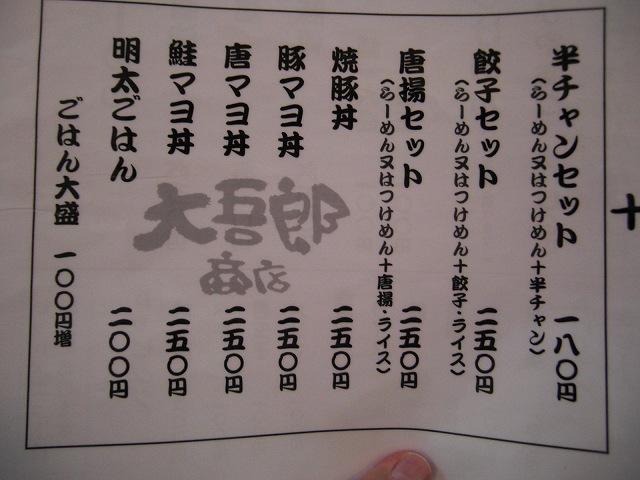 十
半チャンセット 一八〇円
(らーめん又はつけめん+半チャン)
餃子セット 二五〇円
(らーめん又はつけめん+餃子・ライス)
唐揚セット 二五〇円
(らーめん又はつけめん+唐揚・ライス)
焼豚丼 二五〇円
豚マヨ丼 二五〇円
唐マヨ丼 二五〇円
鮭マヨ丼 二五〇円
明太ごはん 二〇〇円
ごはん大盛 一〇〇円増